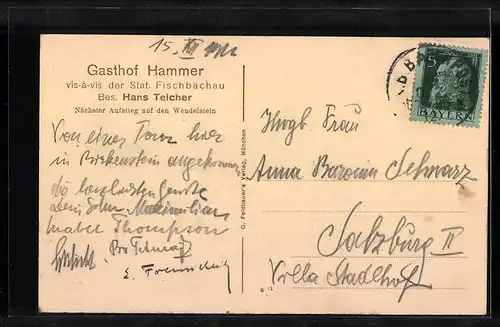 15. VI 1912
Gasthof Hammer
vis-à-vis der Stat. Fischbachau
Bes. Hans Teicher
Nächster Aufstieg auf den Wendelstein
Von einer Tour hier
in Birkenstein angekommen
die
dein Sohn Maximilian
Mabel Thompson
C. Feldbauer's Verlag, München
5
BAYERN
Hwgb. Frau
Anna Baronin Schwarz
Salzburg II
Villa Stadlhof